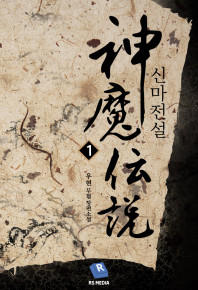 神魔伝説
신마전설
1
우현 무협 장편소설
R
RS MEDIA